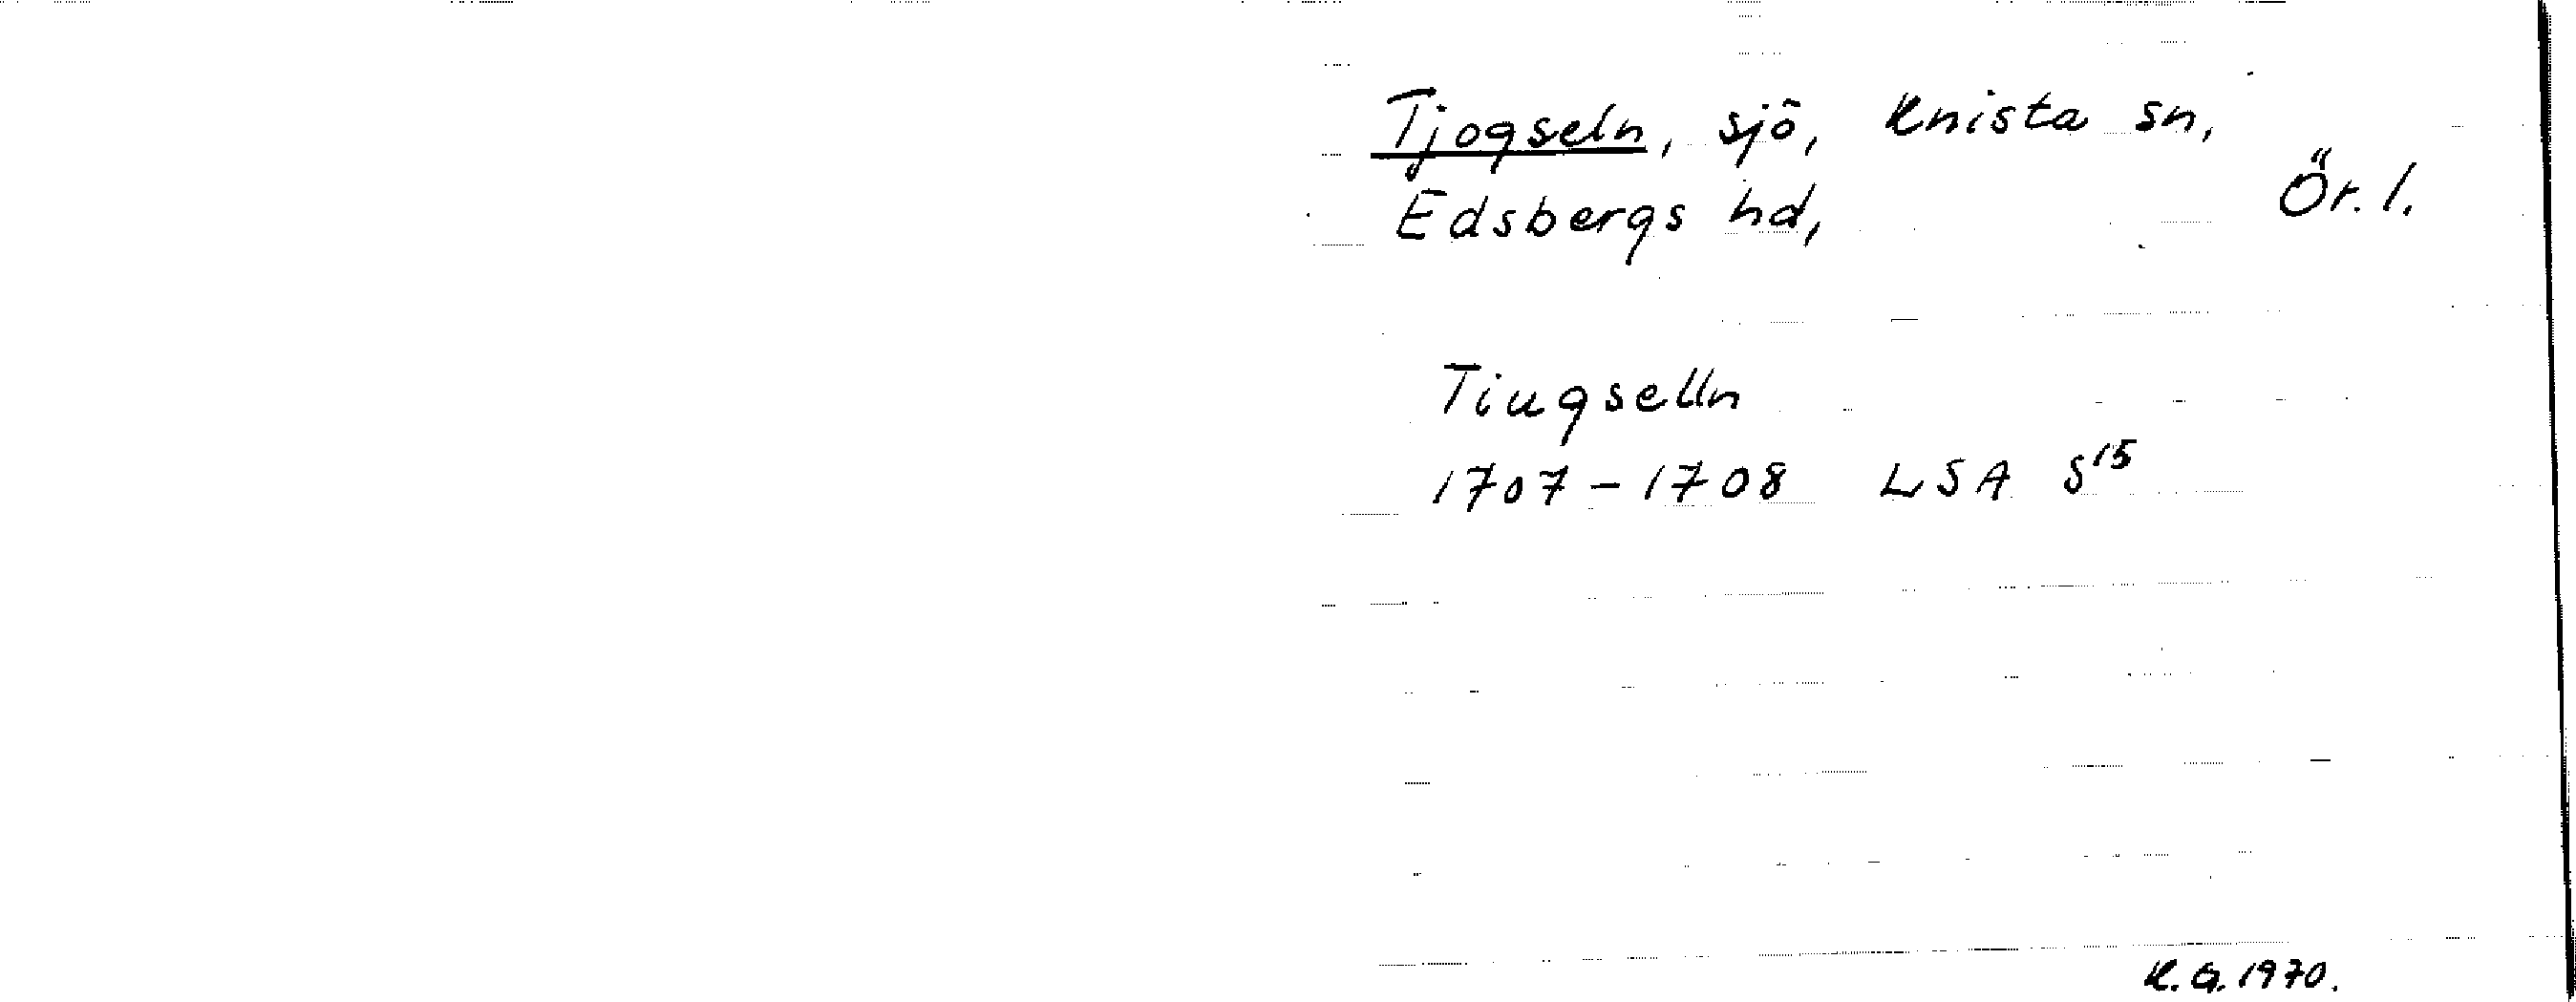 Tjogseln, sjö, Knista sn,
Edsbergs hd, Ör. l.
Tiugselln
1707-1708 LSA S15
K. G. 1970.